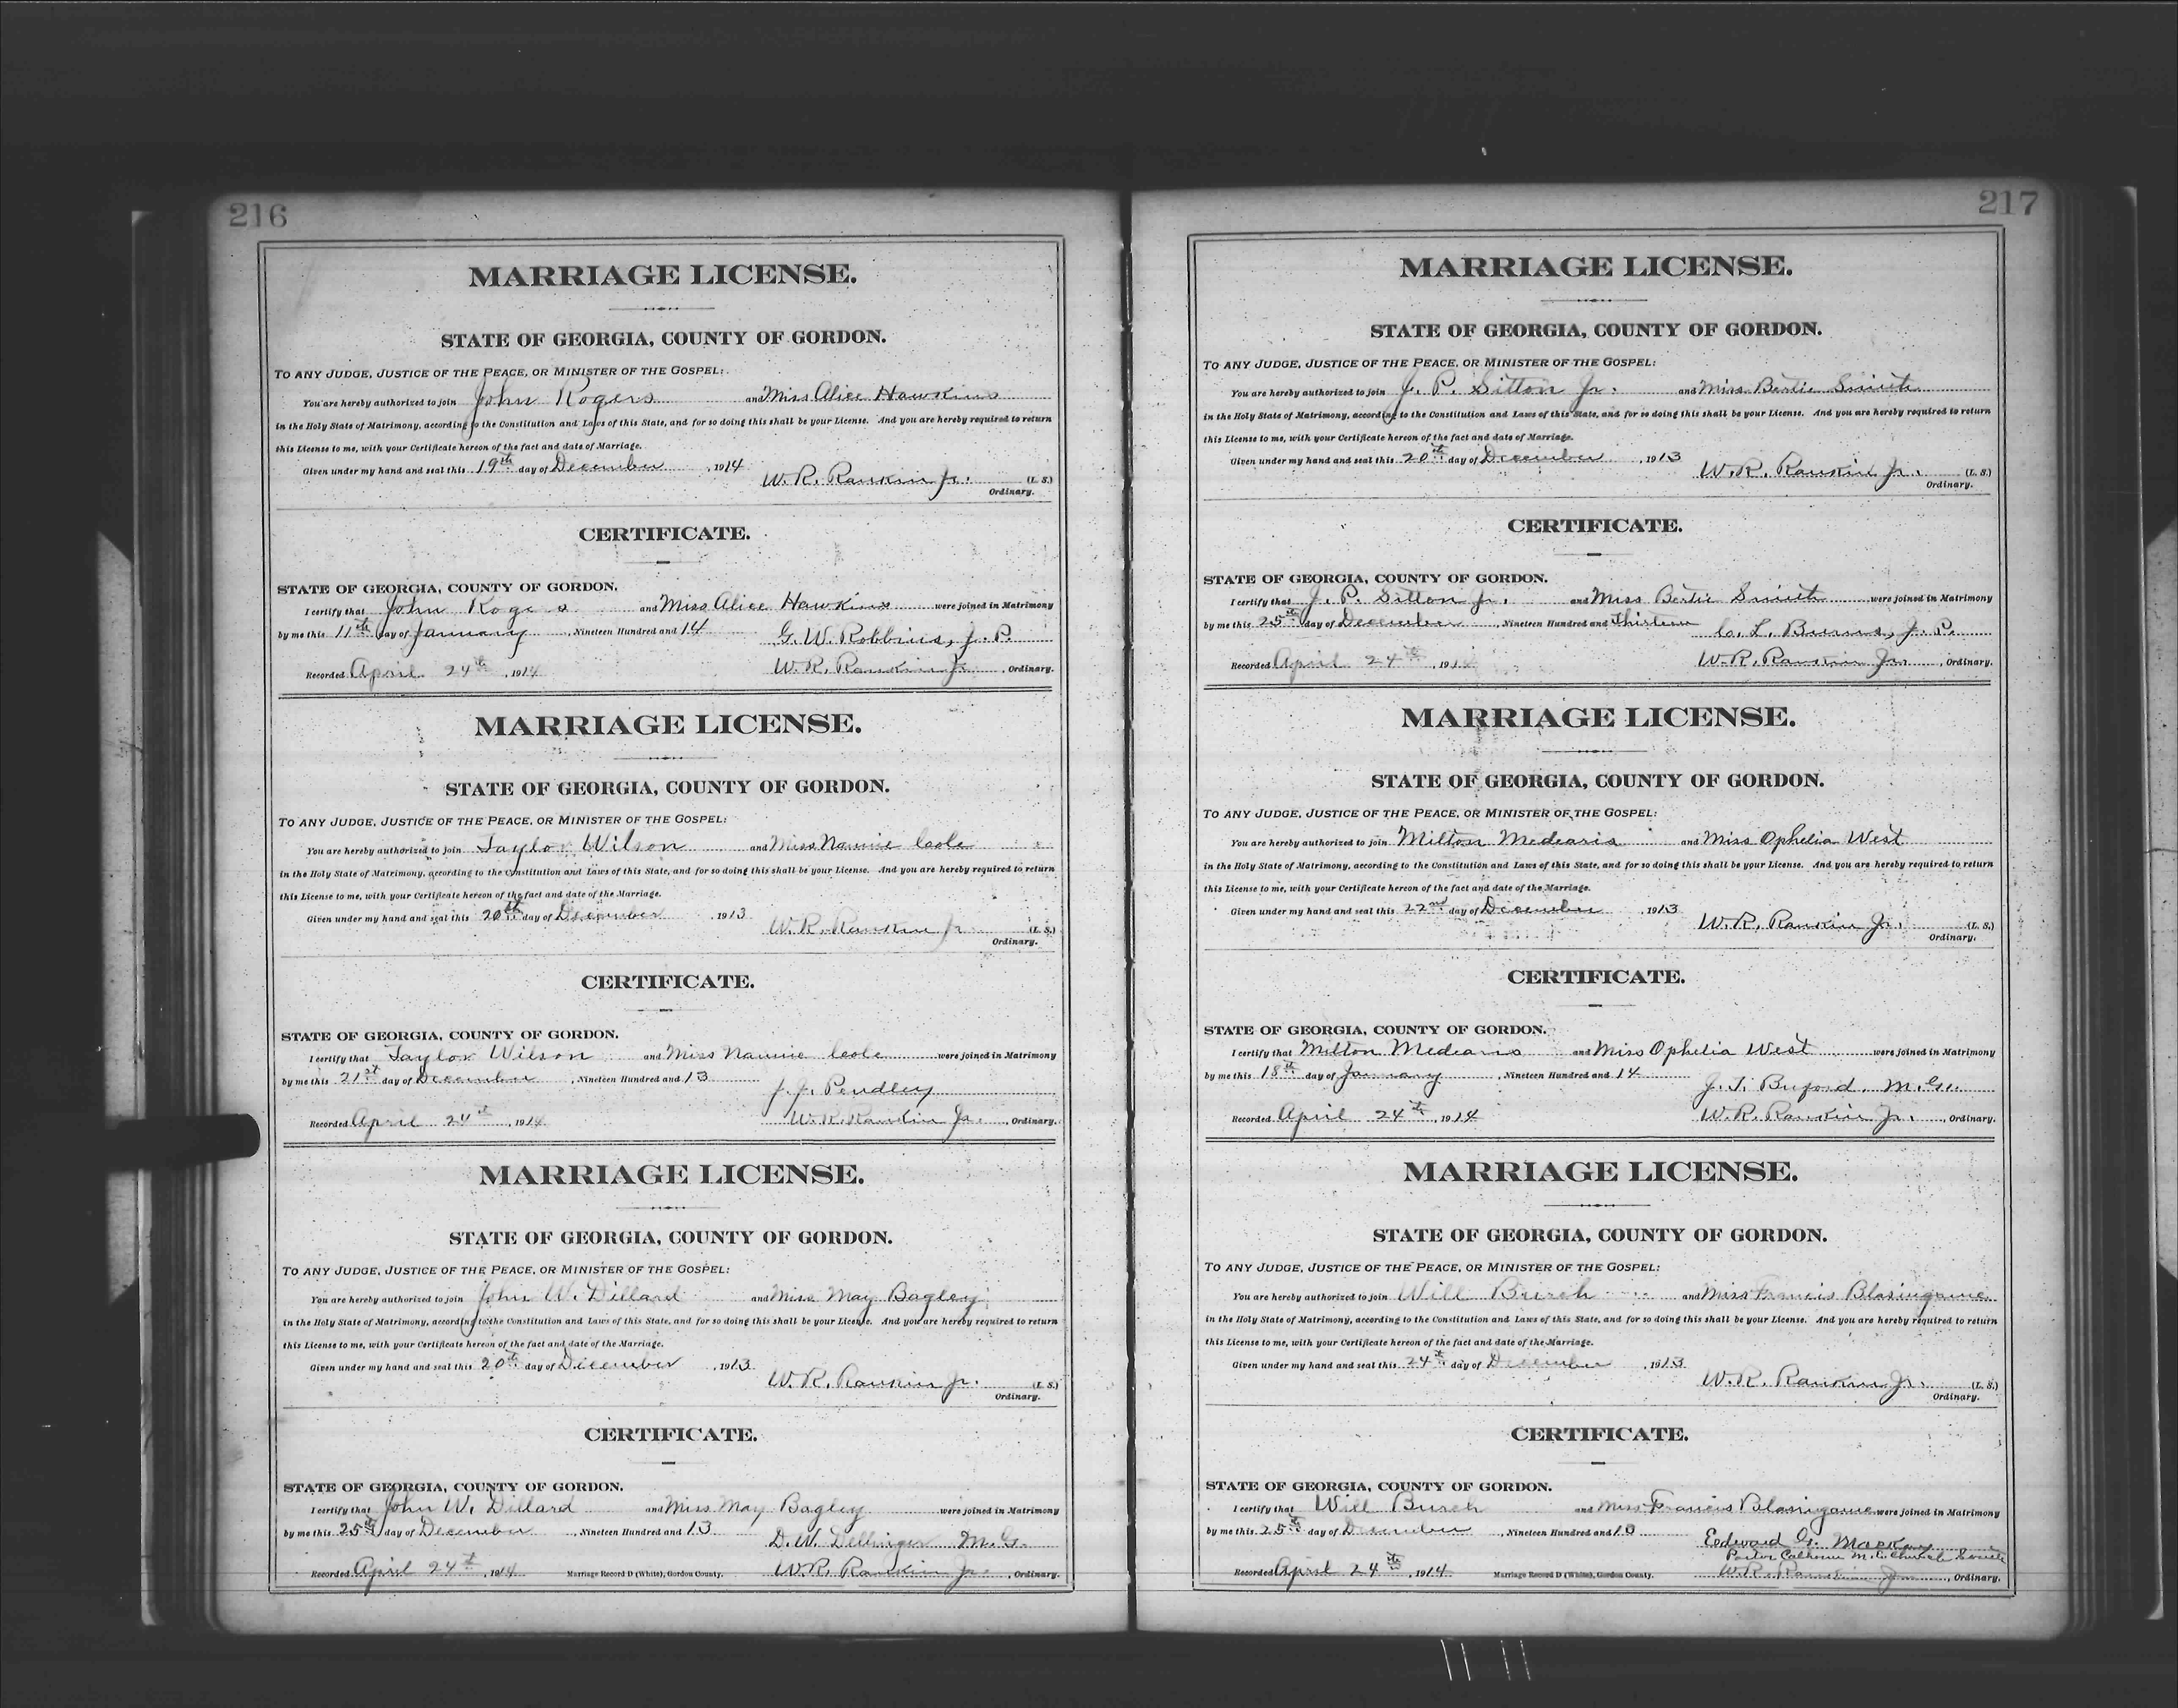 216
MARRIAGE LICENSE.
STATE OF GEORGIA, COUNTY OF GORDON.
TO ANY JUDGE, JUSTICE OF THE PEACE, OR MINISTER OF THE GOSPEL:
You are hereby authorized to join John Rogers and Miss Alice Hawkins
in the Holy State of Matrimony, according to the Constitution and Laws of this State, and for so doing this shall be your License. And you are hereby required to return
this License to me, with your Certificate hereon of the fact and date of Marriage.
Given under my hand and seal this 19th day of December, 1914
W. R. Rankin Jr. (L. S.)
Ordinary.
CERTIFICATE.
STATE OF GEORGIA, COUNTY OF GORDON.
I certify that John Rogers and Miss Alice Hawkins were joined in Matrimony
by me this 11th day of January, Nineteen Hundred and 14 G. W. Robbins, J. P.
Recorded April 24th, 1914 W. R. Rankin Jr., Ordinary.
MARRIAGE LICENSE.
STATE OF GEORGIA, COUNTY OF GORDON.
TO ANY JUDGE, JUSTICE OF THE PEACE, OR MINISTER OF THE GOSPEL:
You are hereby authorized to join Taylor Wilson and Miss Nannie Cole
in the Holy State of Matrimony, according to the Constitution and Laws of this State, and for so doing this shall be your License. And you are hereby required to return
this License to me, with your Certificate hereon of the fact and date of the Marriage.
Given under my hand and seal this 20th day of December, 1913
W. R. Rankin Jr. (L. S.)
Ordinary.
CERTIFICATE.
STATE OF GEORGIA, COUNTY OF GORDON.
I certify that Taylor Wilson and Miss Nannie Cole were joined in Matrimony
by me this 21st day of December, Nineteen Hundred and 13 J. J. Pendley
Recorded April 24th, 1914 W. R. Rankin Jr., Ordinary.
MARRIAGE LICENSE.
STATE OF GEORGIA, COUNTY OF GORDON.
TO ANY JUDGE, JUSTICE OF THE PEACE, OR MINISTER OF THE GOSPEL:
You are hereby authorized to join John W. Dillard and Miss May Bagley
in the Holy State of Matrimony, according to the Constitution and Laws of this State, and for so doing this shall be your License. And you are hereby required to return
this License to me, with your Certificate hereon of the fact and date of the Marriage.
Given under my hand and seal this 20th day of December, 1913
W. R. Rankin Jr. (L. S.)
Ordinary.
CERTIFICATE.
STATE OF GEORGIA, COUNTY OF GORDON.
I certify that John W. Dillard and Miss May Bagley were joined in Matrimony
by me this 25th day of December, Nineteen Hundred and 13 D. W. Dellinger M. G.
Recorded April 24th, 1914 Marriage Record D (White), Gordon County. W. R. Rankin Jr., Ordinary.
217
MARRIAGE LICENSE.
STATE OF GEORGIA, COUNTY OF GORDON.
TO ANY JUDGE, JUSTICE OF THE PEACE, OR MINISTER OF THE GOSPEL:
You are hereby authorized to join J. P. Sitton Jr. and Miss Bertie Smith
in the Holy State of Matrimony, according to the Constitution and Laws of this State, and for so doing this shall be your License. And you are hereby required to return
this License to me, with your Certificate hereon of the fact and date of Marriage.
Given under my hand and seal this 20th day of December, 1913
W. R. Rankin Jr. (L. S.)
Ordinary.
CERTIFICATE.
STATE OF GEORGIA, COUNTY OF GORDON.
I certify that J. P. Sitton Jr. and Miss Bertie Smith were joined in Matrimony
by me this 25th day of December, Nineteen Hundred and Thirteen C. L. Burns, J. P.
Recorded April 24th, 1914 W. R. Rankin Jr., Ordinary.
MARRIAGE LICENSE.
STATE OF GEORGIA, COUNTY OF GORDON.
TO ANY JUDGE, JUSTICE OF THE PEACE, OR MINISTER OF THE GOSPEL:
You are hereby authorized to join Milton Medearis and Miss Ophelia West
in the Holy State of Matrimony, according to the Constitution and Laws of this State, and for so doing this shall be your License. And you are hereby required to return
this License to me, with your Certificate hereon of the fact and date of the Marriage.
Given under my hand and seal this 22nd day of December, 1913
W. R. Rankin Jr. (L. S.)
Ordinary.
CERTIFICATE.
STATE OF GEORGIA, COUNTY OF GORDON.
I certify that Milton Medearis and Miss Ophelia West were joined in Matrimony
by me this 18th day of January, Nineteen Hundred and 14 J. T. Buford, M. G.
Recorded April 24th, 1914 W. R. Rankin Jr., Ordinary.
MARRIAGE LICENSE.
STATE OF GEORGIA, COUNTY OF GORDON.
TO ANY JUDGE, JUSTICE OF THE PEACE, OR MINISTER OF THE GOSPEL:
You are hereby authorized to join Will Burch and Miss Francis Blasingame
in the Holy State of Matrimony, according to the Constitution and Laws of this State, and for so doing this shall be your License. And you are hereby required to return
this License to me, with your Certificate hereon of the fact and date of the Marriage.
Given under my hand and seal this 24th day of December, 1913
W. R. Rankin Jr. (L. S.)
Ordinary.
CERTIFICATE.
STATE OF GEORGIA, COUNTY OF GORDON.
I certify that Will Burch and Miss Francis Blasingame were joined in Matrimony
by me this 25th day of December, Nineteen Hundred and 13 Edward G. Mackay
Pastor Calhoun M. E. Church South
Recorded April 24th, 1914 Marriage Record D (White), Gordon County. W. R. Rankin Jr., Ordinary.